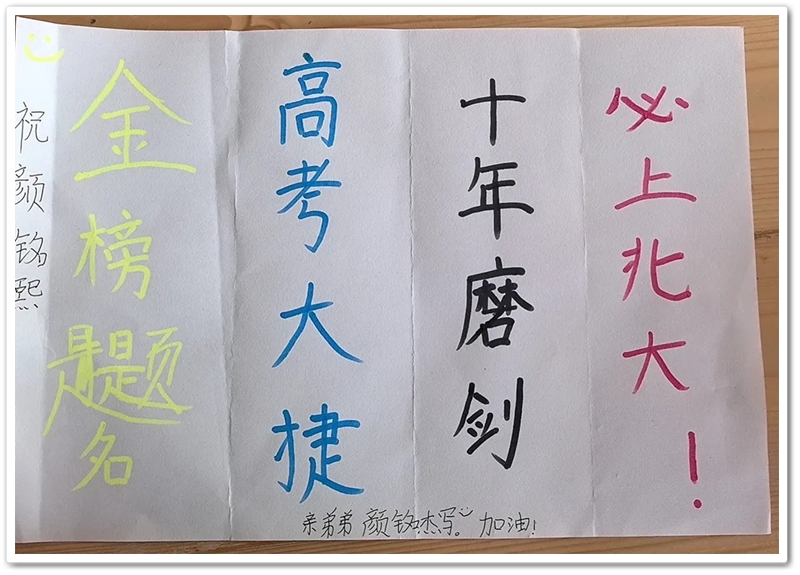 祝颜铭熙
金榜题名
高考大捷
十年磨剑
必上北大！
亲弟弟 颜铭杰写。加油！